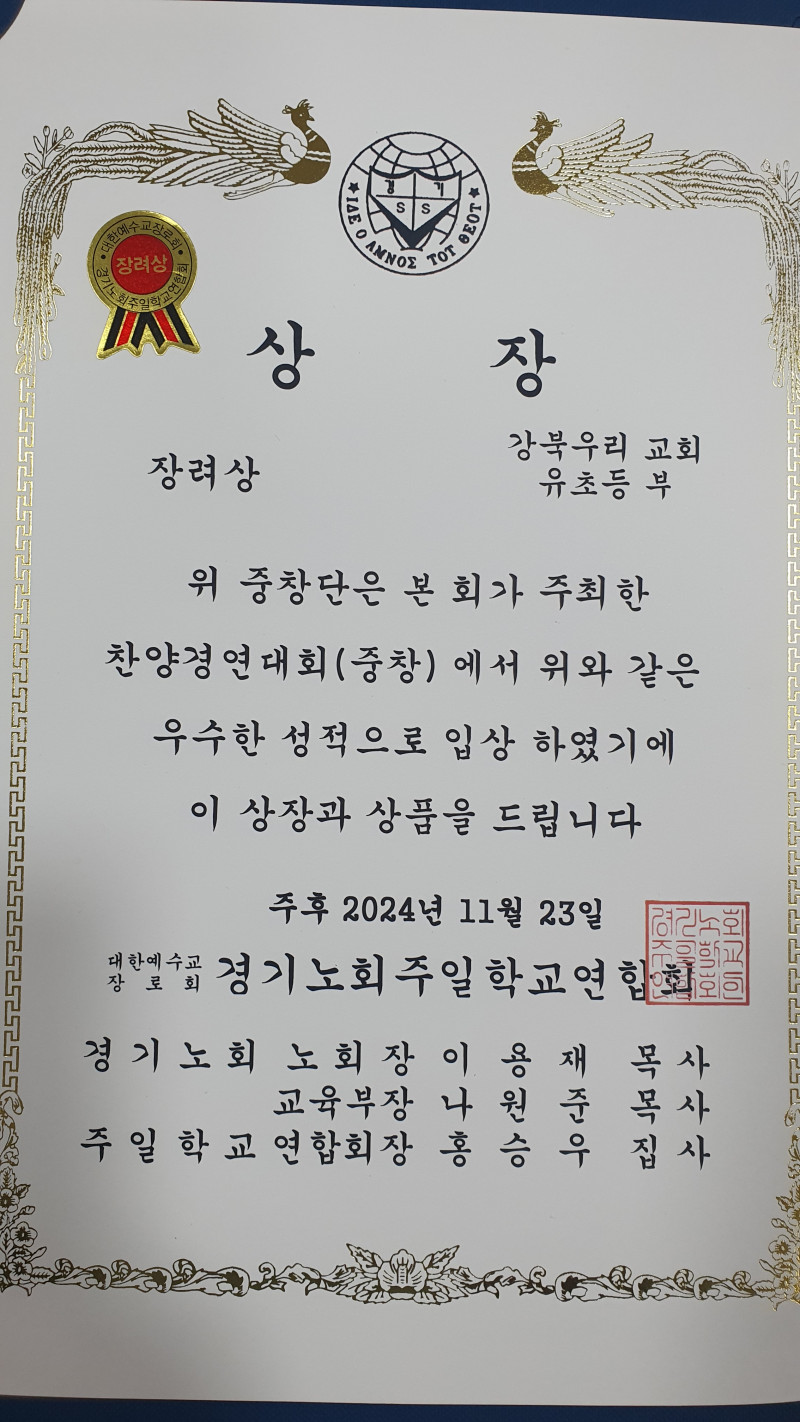 경 기
S S
ΙΔΕ Ο ΑΜΝΟΣ ΤΟΤ ΘΕΟΤ
대한예수교장로회
장려상
경기노회주일학교연합회
상 장
장려상
강북우리 교회
유초등 부
위 중창단은 본 회가 주최한
찬양경연대회(중창) 에서 위와 같은
우수한 성적으로 입상 하였기에
이 상장과 상품을 드립니다
주후 2024년 11월 23일
대한예수교
장 로 회
경기노회주일학교연합회
경 기 노 회 노 회 장 이 용 재 목 사
교육부장 나 원 준 목 사
주 일 학 교 연합회장 홍 승 우 집 사